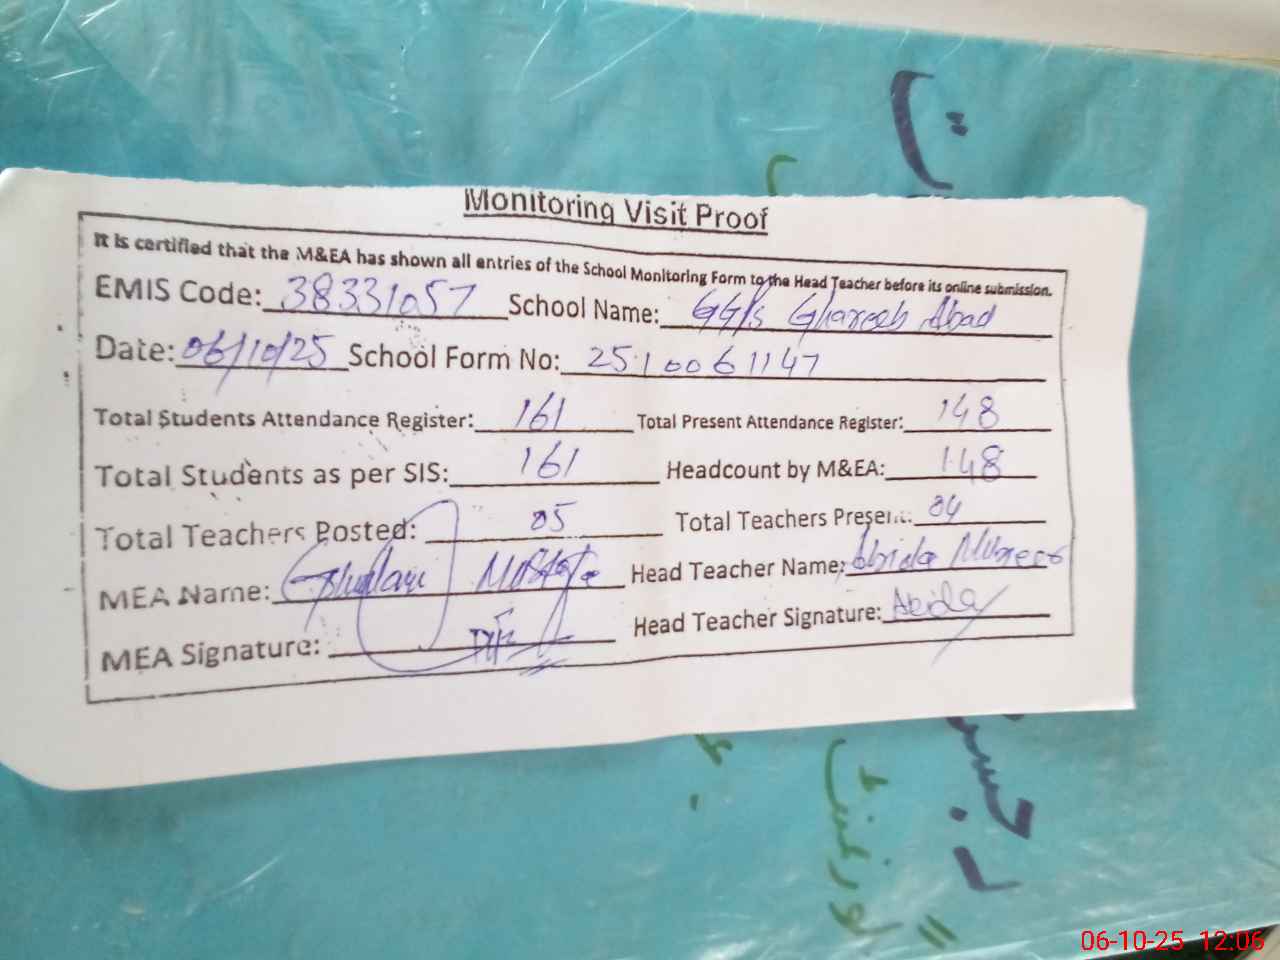 Monitoring Visit Proof
It is certified that the M&EA has shown all entries of the School Monitoring Form to the Head Teacher before its online submission.
EMIS Code: 38331057 School Name: GG/s Ghareeb Abad
Date: 06/10/25 School Form No: 2510061147
Total Students Attendance Register: 161 Total Present Attendance Register: 148
Total Students as per SIS: 161 Headcount by M&EA: 148
Total Teachers Posted: 05 Total Teachers Present: 04
MEA Name: Ghulam Mustafa Head Teacher Name: Abida
MEA Signature: Head Teacher Signature: Abida
06-10-25 12:06